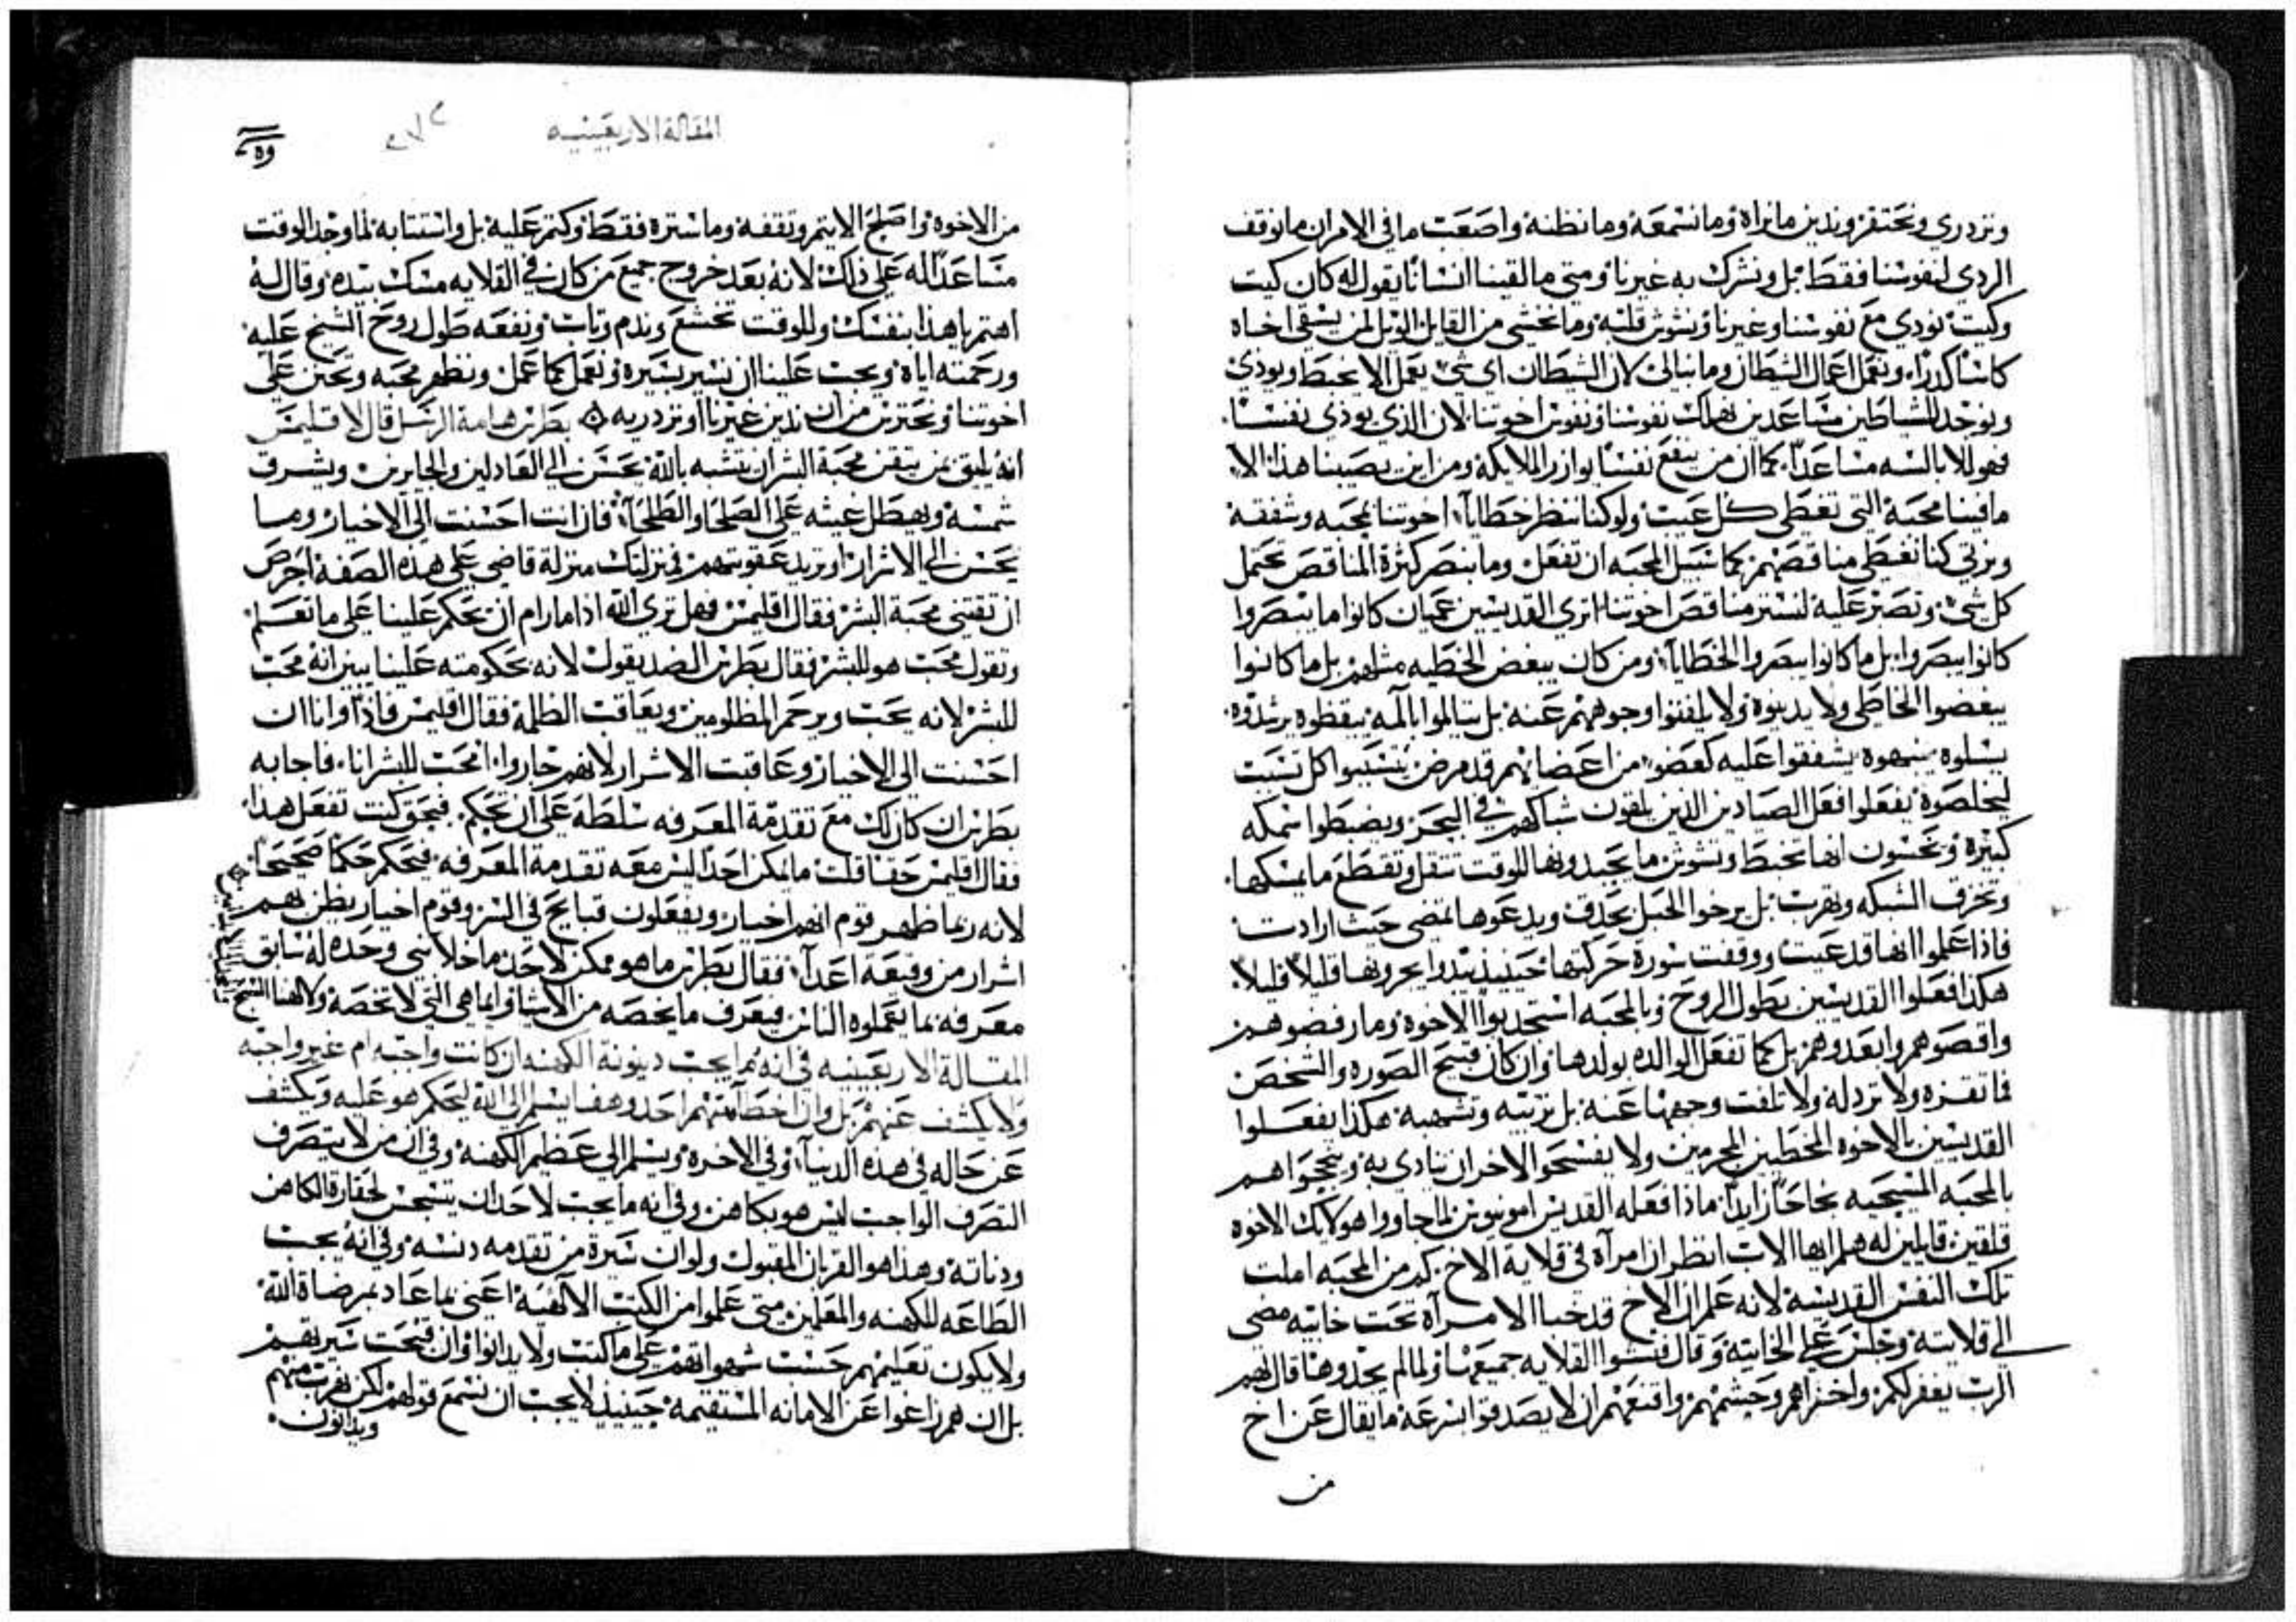 ونزدري ونحتقر وندين ما نراه وما نسمعه وما نظنه واصعب ما في الامر ان ما نوقف
الردي لنفوسنا فقط بل ونشرك به غيرنا ومتى ما لقينا انسانًا يقول له كان كيت
وكيت نودي مع نفوسنا وغيرنا ونشوش قلبه وما نخشى من القايل الويل لمن يسقي اخاه
كاسًا كدرًا ونعمل اعمال الشطان وما نبالي لان الشطان اي شي يعمل الا يخبط ويودي
ونوجد للشاطين مساعدين نهلك نفوسنا ونفوس اخوتنا لان الذي يوذي نفسًا
فهو للابالسه مساعدًا كما ان من ينفع نفسًا يوازر الملايكة ومن اين يصيبنا هذا الا
ما فينا محبة التي تغطي كل عيب ولو كنا ننظر خطايا اخوتنا بمحبه وشفقة
ونرثي كنا نغطي مناقصهم كما سبيل المحبه ان تفعل وما ننصر كثرة المناقص تحتمل
كل شي وتصبر عليه لنستر مناقص اخوتنا اترى القديسين عميان كانوا ما يبصروا
كانوا يبصروا بل ما كانوا يبصروا الخطايا ومن كان يبغض الخطيه مثلهم بل ما كانوا
يبغضوا الخاطي ولا يدينوه ولا يلفتوا وجوههم عنه بل يتالموا بالمه ييقظوه يرشدوه
يسلوه ينبهوه يشفقوا عليه كعضو من اعضايهم قد مرض يتسببوا كل تسبب
ليخلصوه يفعلوا فعل الصيادين الذين يلقون شباكهم في البحر ويضبطوا سمكه
كبيرة ويحسون انها تخبط وتشوش ما يجبدونها للوقت تنقل وتقطع ما يمسكها
وتخرق الشبكه وتهرب بل يرخوا الحبل بحدق ويدعوها تمضي حيث ارادت
فاذا علموا انها قد عيت ووقفت سورة حركتها حينيذ يبدوا يجرونها قليلا قليلا
هكذا فعلوا القديسين بطول الروح وبالمحبه استجدبوا الاخوه وما رفضوهم
واقصوهم وابعدوهم بل كما تفعل الوالده بولدها وان كان قبيح الصوره والشخص
فما تقزه ولا تردله ولا تلفت وجهها عنه بل تزينه وتشهيه هكذا يفعلوا
القديسين بالاخوه المخطين المجرمين ولا يفسحوا لاخر ان ينادي به وينجحوا هم
بالمحبه المسيحيه نجاحًا زايدًا ماذا فعله القديس امونيوس لما جاوا هولايك الاخوه
قلقين قايلين له هلم ايها الاب انظر ان امرآة في قلاية الاخ كم من المحبه املت
تلك النفس القديسة لانه علم ان الاخ قد خبا الامرآة تحت خابيه مضى
الى قلايته وجلس على الخابيه وقال فتشوا القلايه جميعها ولما لم يجدوها قال لهم
الرب يغفر لكم واخزاهم وحشمهم واقنعهم ان لا يصدقوا بسرعة ما يقال عن اخ
من
المقالة الاربعينيه
من الاخوه واصلح الايتم وثقفه وما ستره فقط وكتم عليه بل واستتابه لما وجد الوقت
مساعدًا له على ذلك لانه بعد خروج جميع من كان في القلايه مسك بيده وقال له
اهتم يا هذا بنفسك وللوقت تخشع وندم وتاب ونفعه طول روح الشيخ عليه
ورحمته اياه ويجب علينا ان نسير بسيره ونعمل كما عمل ونظهر محبه وتحنن على
اخوتنا ونحترس من ان ندين غيرنا او نزدريه بطرس هامة الرسل قال لاقليمس
انه يليق بمن يقتن محبة البشر ان يتشبه بالله يحسن الى العادلين والجايرين ويشرق
شمسه ويهطل غيثه على الصلحا والطلحا فان انت احسنت الى الاخيار وما
تحسن الى الاشرار او تريد عقوبتهم فنزلتك منزلة قاضي على هذه الصفة احرص
ان تقتني محبة البشر فقال اقليمس فهل ترى الله اذا ما رام ان يحكم علينا على ما تعلم
وتقول محب هو للبشر فقال بطرس الضد يقول لانه بحكومته علينا يبين انه محب
للبشر لانه يحب ويرحم المظلومين ويعاقب الظلمة فقال اقليمس فاذًا وانا ان
احسنت الى الاخيار وعاقبت الاشرار لانهم جاروا امحب للبشر انا فاجابه
بطرس ان كان لك مع تقدمة المعرفه سلطة على ان تحكم فبحق كنت تفعل هذا
فقال اقليمس حقا قلت ما يمكن احدًا ليس معه تقدمة المعرفه فيحكم حكمًا صحيحًا
لانه ربما ظهر قوم انهم اخيار ويفعلون قبايح في السر وقوم اخيار يظن بهم
اشرار من وقيعة اعدا فقال بطرس ما هو ممكن لاحد ما خلا نبي وحده له سابق
معرفه بما يعملوه الناس فيعرف ما يخصه من الاشيا وايما هي التي لا تخصه
المقالة الاربعينيه في انه ما يجب دينونة الكهنه ان كانت واجبه ام غير واجبه
ولا يكشف عنهم بل وان اخطا منهم احد وهفا يسلم الى الله ليحكم هو عليه ويكشف
عن حاله في هذه الدنيا وفي الاخره ويسلم الى عظيم الكهنه وفي ان من لا يتصرف
التصرف الواجب ليس هو بكاهن وفي انه ما يجب لاحد ان يتسجس لحقارة الكاهن
ودناتة وهذا هو القربان المقبول ولو ان سيرة من تقدمه دنسه وفي انه يجب
الطاعه للكهنه والمعلمين متى علموا من الكتب الالهيه اعني بما عاد بمرضاة الله
ولا يكون تعليمهم حسب شهواتهم على ما كتب ولا يدانوا وان قبحت سيرتهم
بل ان هم زاغوا عن الامانه المستقيمه حينيذ لا يجب ان نسمع قولهم لكن نهرب منهم
ويدانون